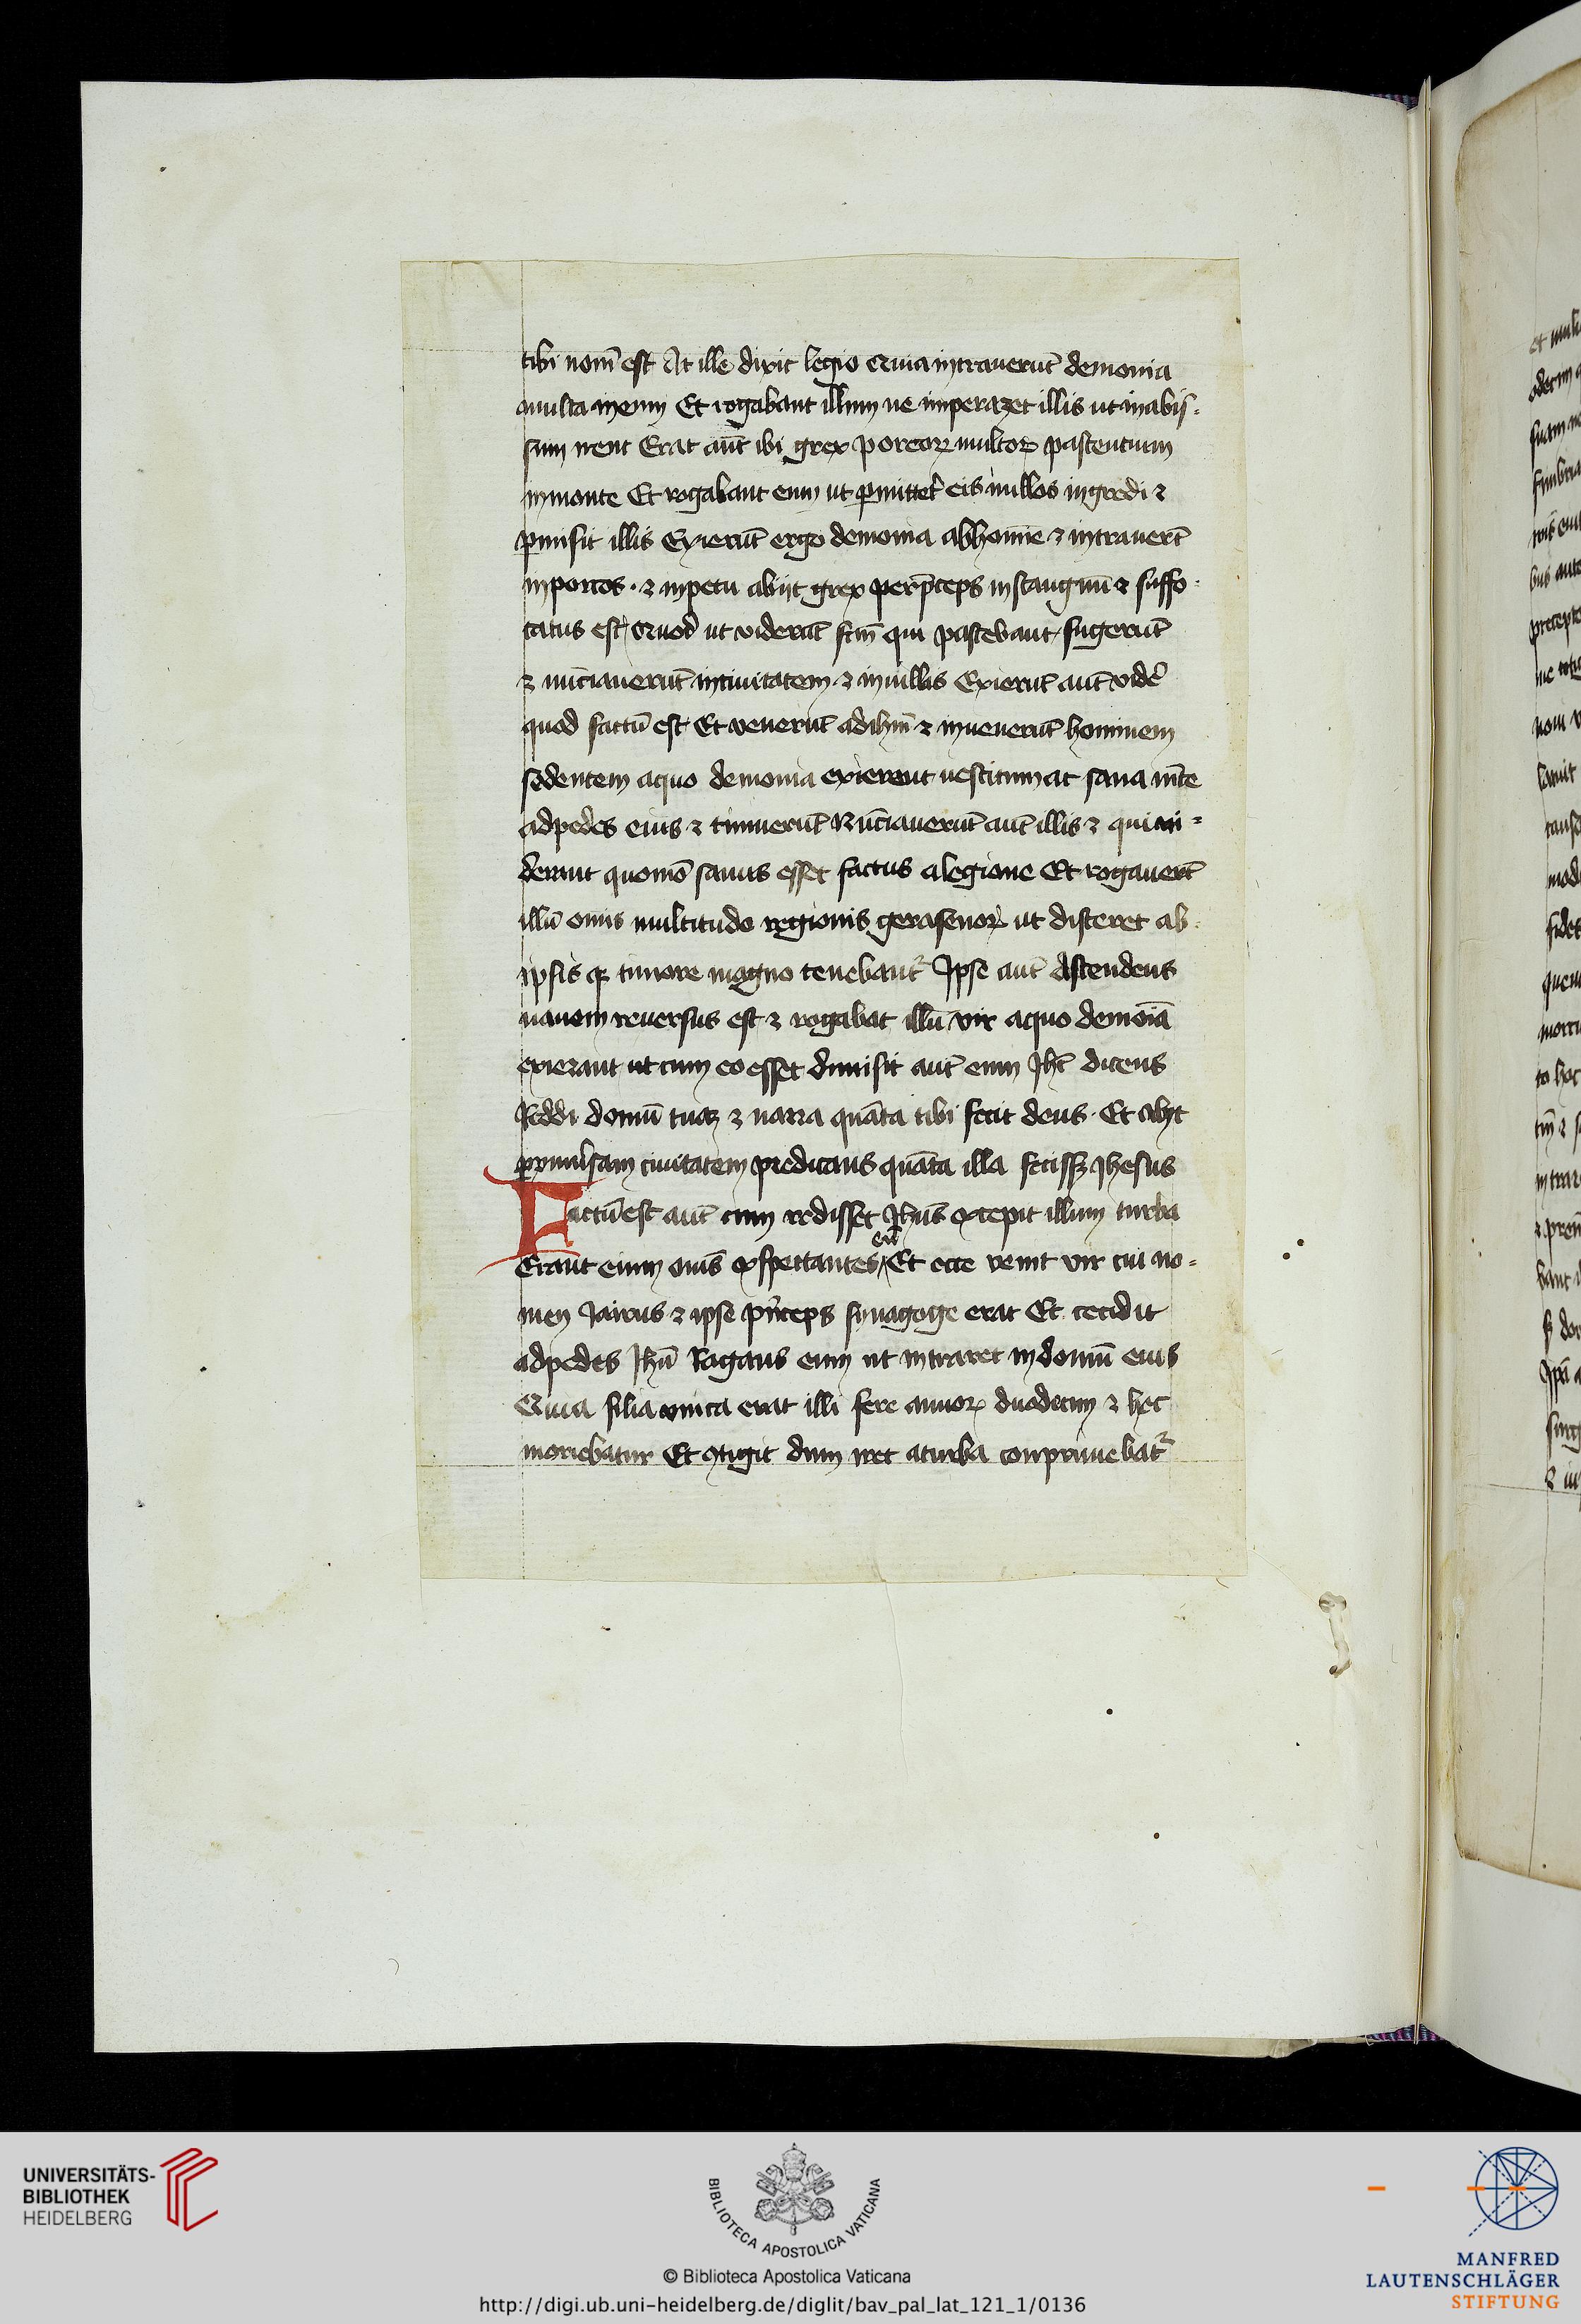 tibi nom̄ est At ille dixit legio Quia intrauerūt demonia
multa in eum Et rogabant illum ne imperaret illis ut in abis-
sum irent Erat aūt ibi grex porcoꝝ multoꝝ pascentium
in monte Et rogabant eum ut ꝑmittet̄ eis in illos ingredi ⁊
ꝑmisit illis Exierūt ergo demonia ab homīe ⁊ intrauert̄
in porcos · ⁊ inpetu abijt grex per p̄ceps in stangnū ⁊ suffo-
catus est Quod ut viderūt fcm̄ qui pascebant fugerūt
⁊ nūciauerūt in ciuitatem ⁊ in uillis Exierūt aūt videˀ
quod factū est Et venerūt ad ihm̄ ⁊ inuenerūt hominem
sedentem a quo demonia exierant uestitum ac sana mēte
ad pedes eius ⁊ timuerūt Nūciauerūt aūt illis ⁊ qui vi-
derant quomō sanus esset factus a legione Et rogauert̄
illū omīs multitudo regionis gerasenoꝝ ut disceret ab
ipsis ꝙ timore magno tenebantˀ Ipse aūt Ascendens
nauem reuersus est ⁊ rogabat illū vir a quo demōia
exierant ut cum eo esset dimisit aūt eum Ihc̄ dicens
Reddi domū tuaꝫ ⁊ narra quāta tibi fecit deus · Et abijt
ꝑ vniuˀsam ciuitatem predicans quāta illa fecissꝫ Ihesus
Factū est aūt cum redisset Ihūs excepit illum turba
Erānt enim om̄s exspectantes eū Et ecce venit vir cui no-
men Jairus ⁊ ipse pⁱnceps synagoge erat Et cecidit
ad pedes Ihū Rogans eum ut intraret in domū eius
Quia filia vnica erat illi fere annoꝝ duodecim ⁊ hec
moriebatur Et ꝯtigit dum iret a turba conprimebatˀ
UNIVERSITÄTS-
BIBLIOTHEK
HEIDELBERG
BIBLIOTECA APOSTOLICA VATICANA
© Biblioteca Apostolica Vaticana
http://digi.ub.uni-heidelberg.de/diglit/bav_pal_lat_121_1/0136
MANFRED
LAUTENSCHLÄGER
STIFTUNG